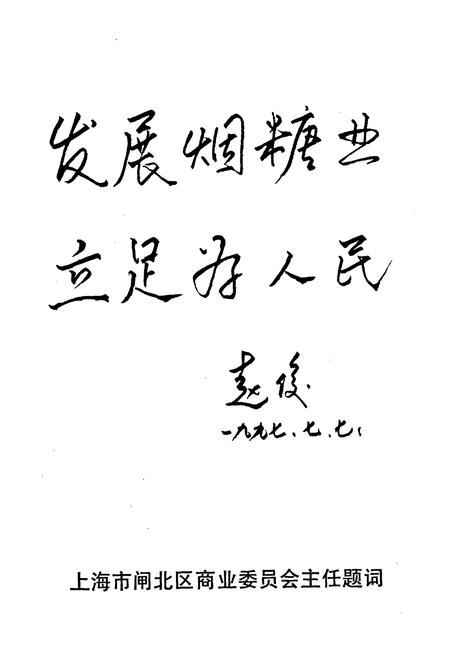 发展烟糖业
立足为人民
赵俊
一九九七、七、七、
上海市闸北区商业委员会主任题词